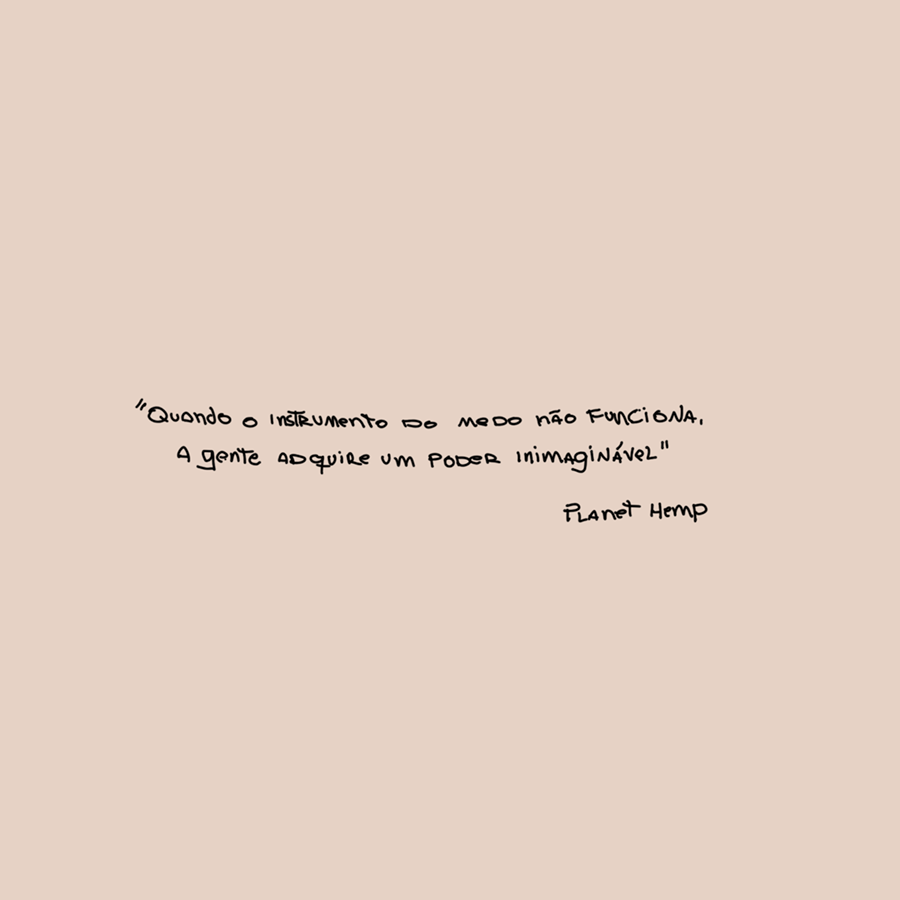 "Quando o instrumento do medo não funciona,
a gente adquire um poder inimaginável"
Planet Hemp